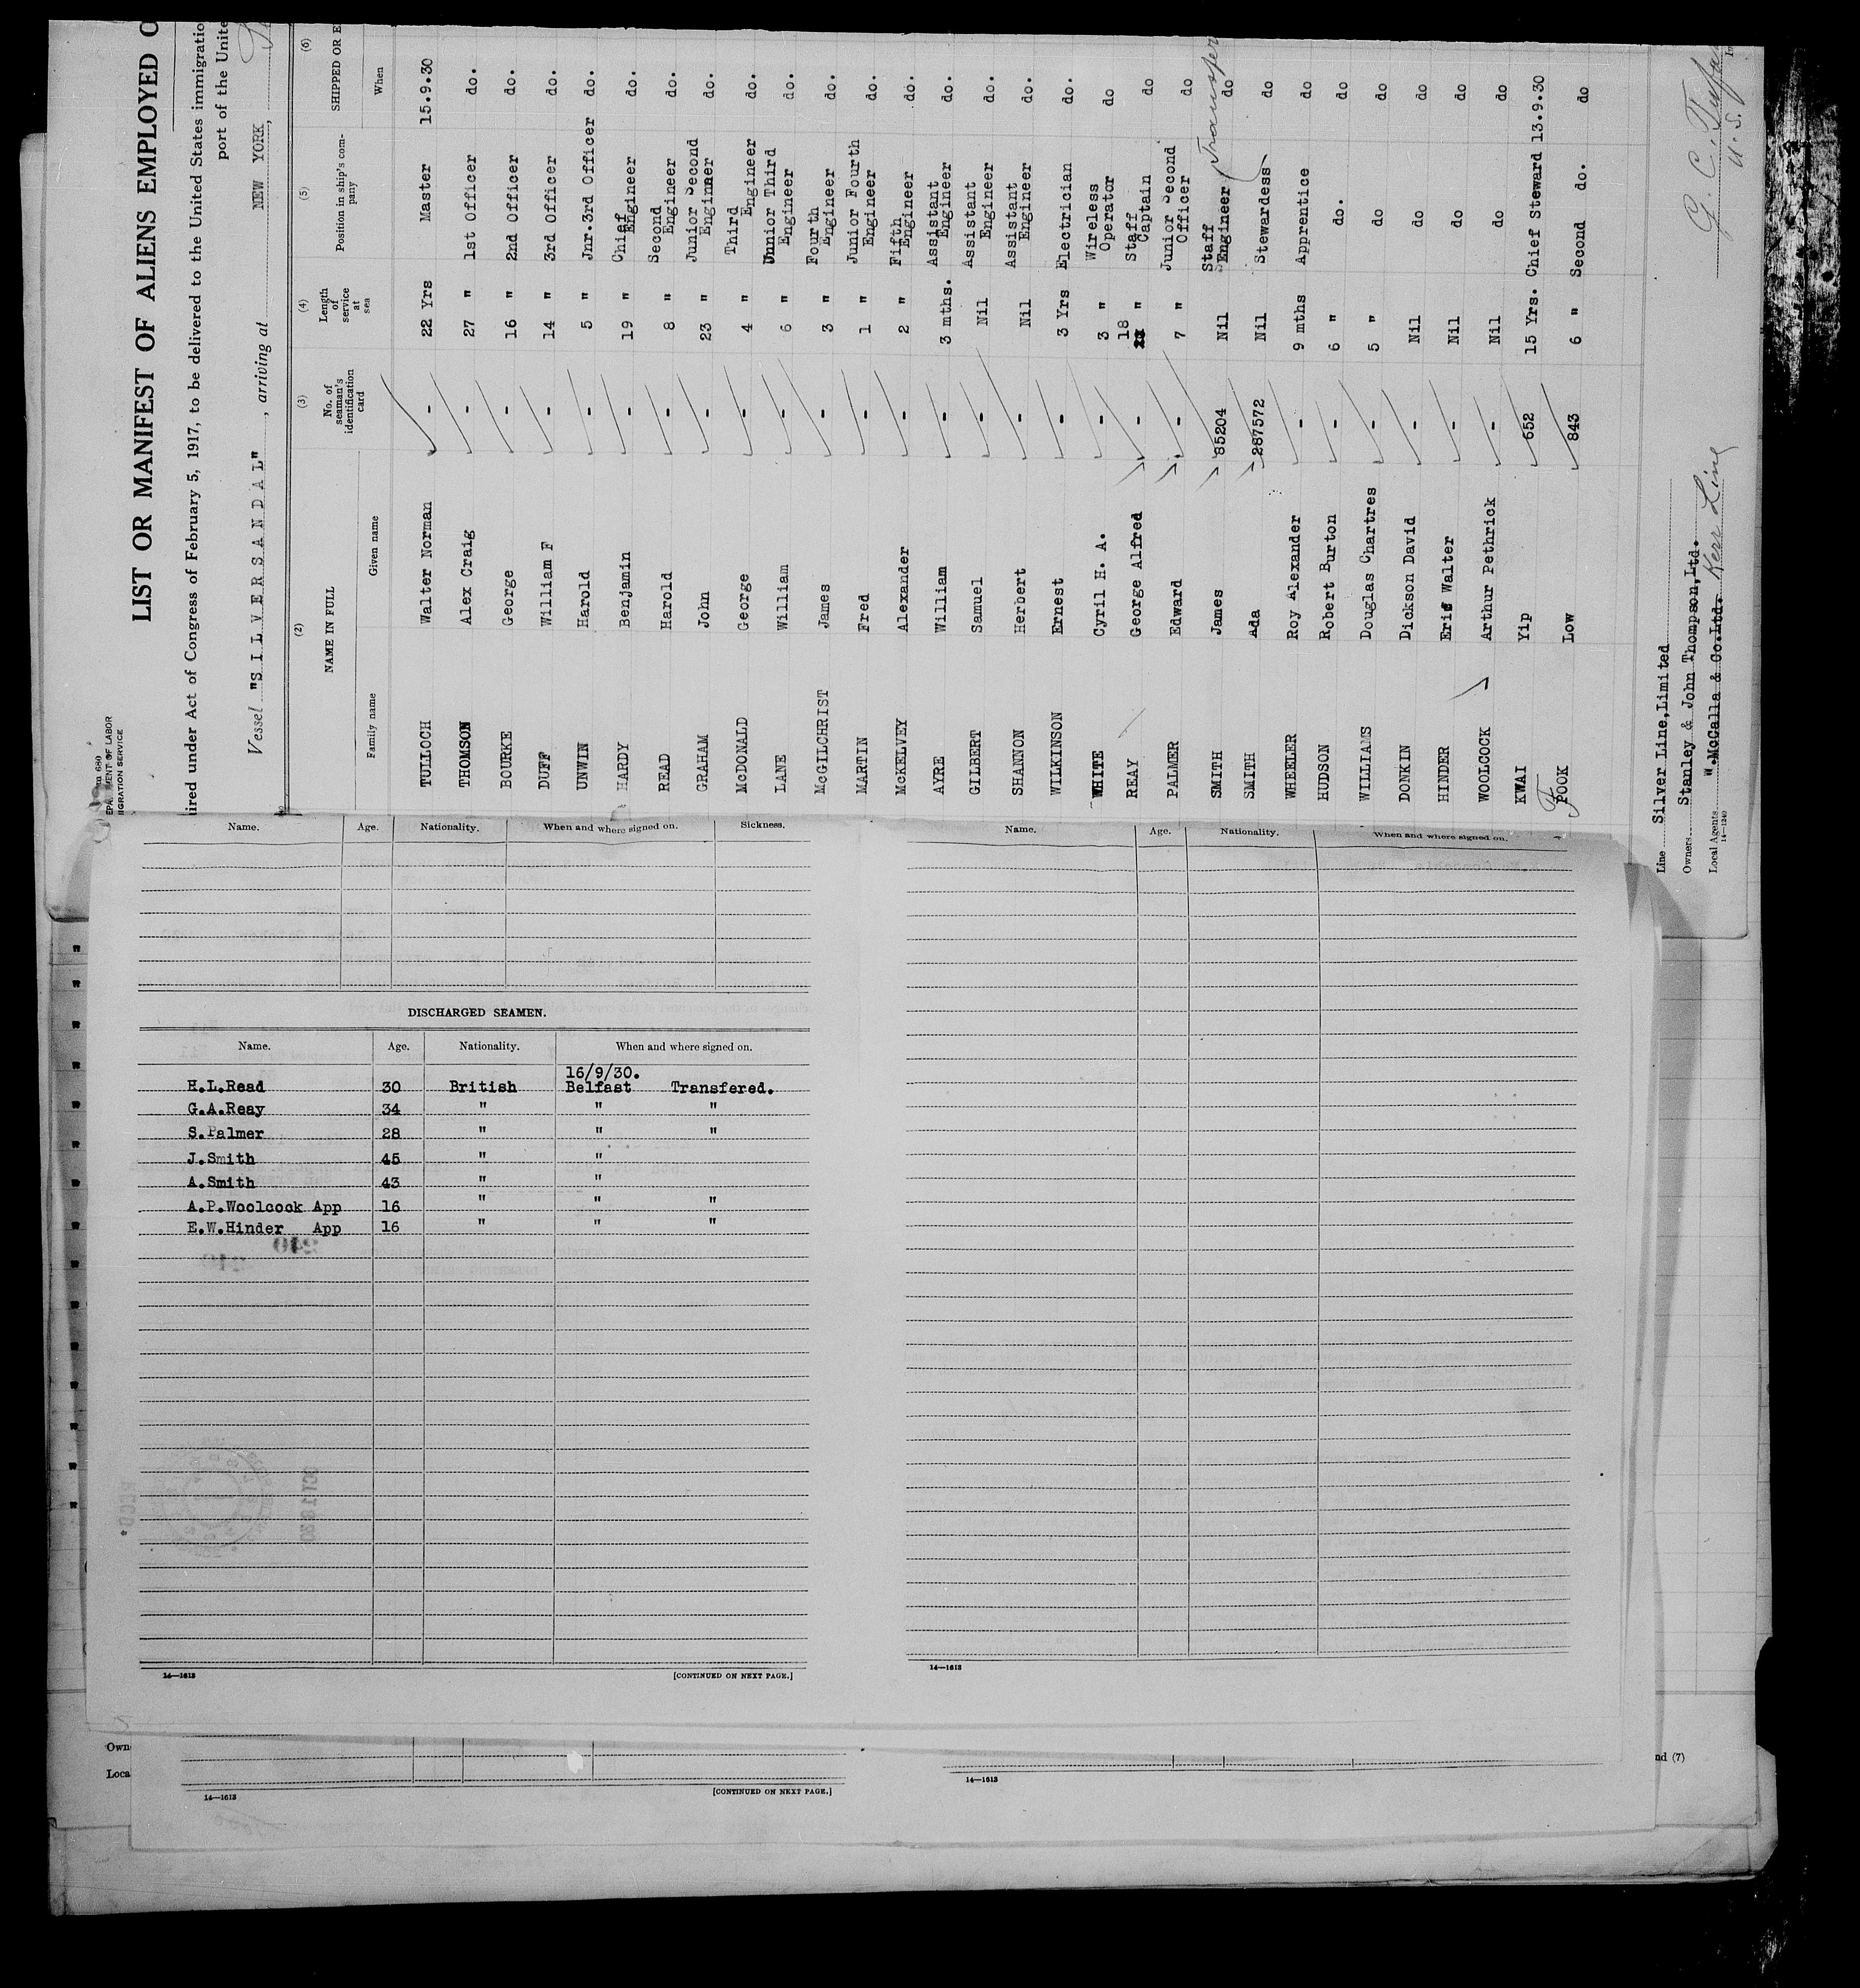 Form 680
DEPARTMENT OF LABOR
IMMIGRATION SERVICE
LIST OR MANIFEST OF ALIENS EMPLOYED O
uired under Act of Congress of February 5, 1917, to be delivered to the United States immigratio
port of the Unite
Vessel "SILVERSANDAL", arriving at NEW YORK,
(2) (3) (4) (5) (6)
NAME IN FULL No. of seaman's identification card Length of service at sea Position in ship's company SHIPPED OR E
Family name Given name When
TULLOCH Walter Norman - 22 Yrs Master 15.9.30
THOMSON Alex Craig - 27 " 1st Officer do.
BOURKE George - 16 " 2nd Officer do.
DUFF William F - 14 " 3rd Officer do.
UNWIN Harold - 5 " Jnr.3rd Officer do.
HARDY Benjamin - 19 " Chief Engineer do.
READ Harold - 8 " Second Engineer do.
GRAHAM John - 23 " Junior Second Engineer do.
McDONALD George - 4 " Third Engineer do.
LANE William - 6 " Junior Third Engineer do.
McGILCHRIST James - 3 " Fourth Engineer do.
MARTIN Fred - 1 " Junior Fourth Engineer do.
McKELVEY Alexander - 2 " Fifth Engineer do.
AYRE William - 3 mths. Assistant Engineer do.
GILBERT Samuel - Nil Assistant Engineer do.
SHANNON Herbert - Nil Assistant Engineer do.
WILKINSON Ernest - 3 Yrs Electrician do.
WHITE Cyril H. A. - 3 " Wireless Operator do
REAY George Alfred - 18 " Staff Captain do
PALMER Edward - 7 " Junior Second Officer do
SMITH James 85204 Nil Staff Engineer do
Transfer
SMITH Ada 287572 Nil Stewardess do
WHEELER Roy Alexander - 9 mths Apprentice do
HUDSON Robert Burton - 6 " do. do
WILLIAMS Douglas Chartres - 5 " do do
DONKIN Dickson David - Nil do do
HINDER Eric Walter - Nil do do
WOOLCOCK Arthur Pethrick - Nil do do
KWAI Yip 652 15 Yrs. Chief Steward 13.9.30
FOOK Low 843 6 " Second do. do
Line Silver Line,Limited
Owners Stanley & John Thompson,Ltd.
Local Agents W.McCalla & Co.Ltd. Kerr Line
14—1240
Name. Age. Nationality. When and where signed on. Sickness.
DISCHARGED SEAMEN.
Name. Age. Nationality. When and where signed on.
16/9/30.
H.L.Read 30 British Belfast Transfered.
G.A.Reay 34 " " "
S.Palmer 28 " " "
J.Smith 45 " "
A.Smith 43 " "
A.P.Woolcock App 16 " " "
E.W.Hinder App 16 " " "
14—1613 [CONTINUED ON NEXT PAGE.]
Name. Age. Nationality. When and where signed on.
14—1613
Own
Loca
nd (7)
14—1613 [CONTINUED ON NEXT PAGE.]
14—1613